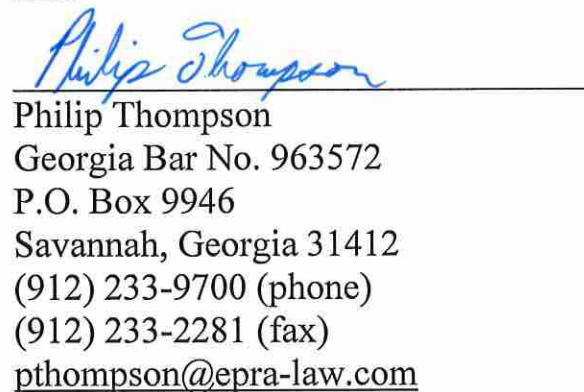 Philip Thompson
Philip Thompson
Georgia Bar No. 963572
P.O. Box 9946
Savannah, Georgia 31412
(912) 233-9700 (phone)
(912) 233-2281 (fax)
pthompson@epra-law.com